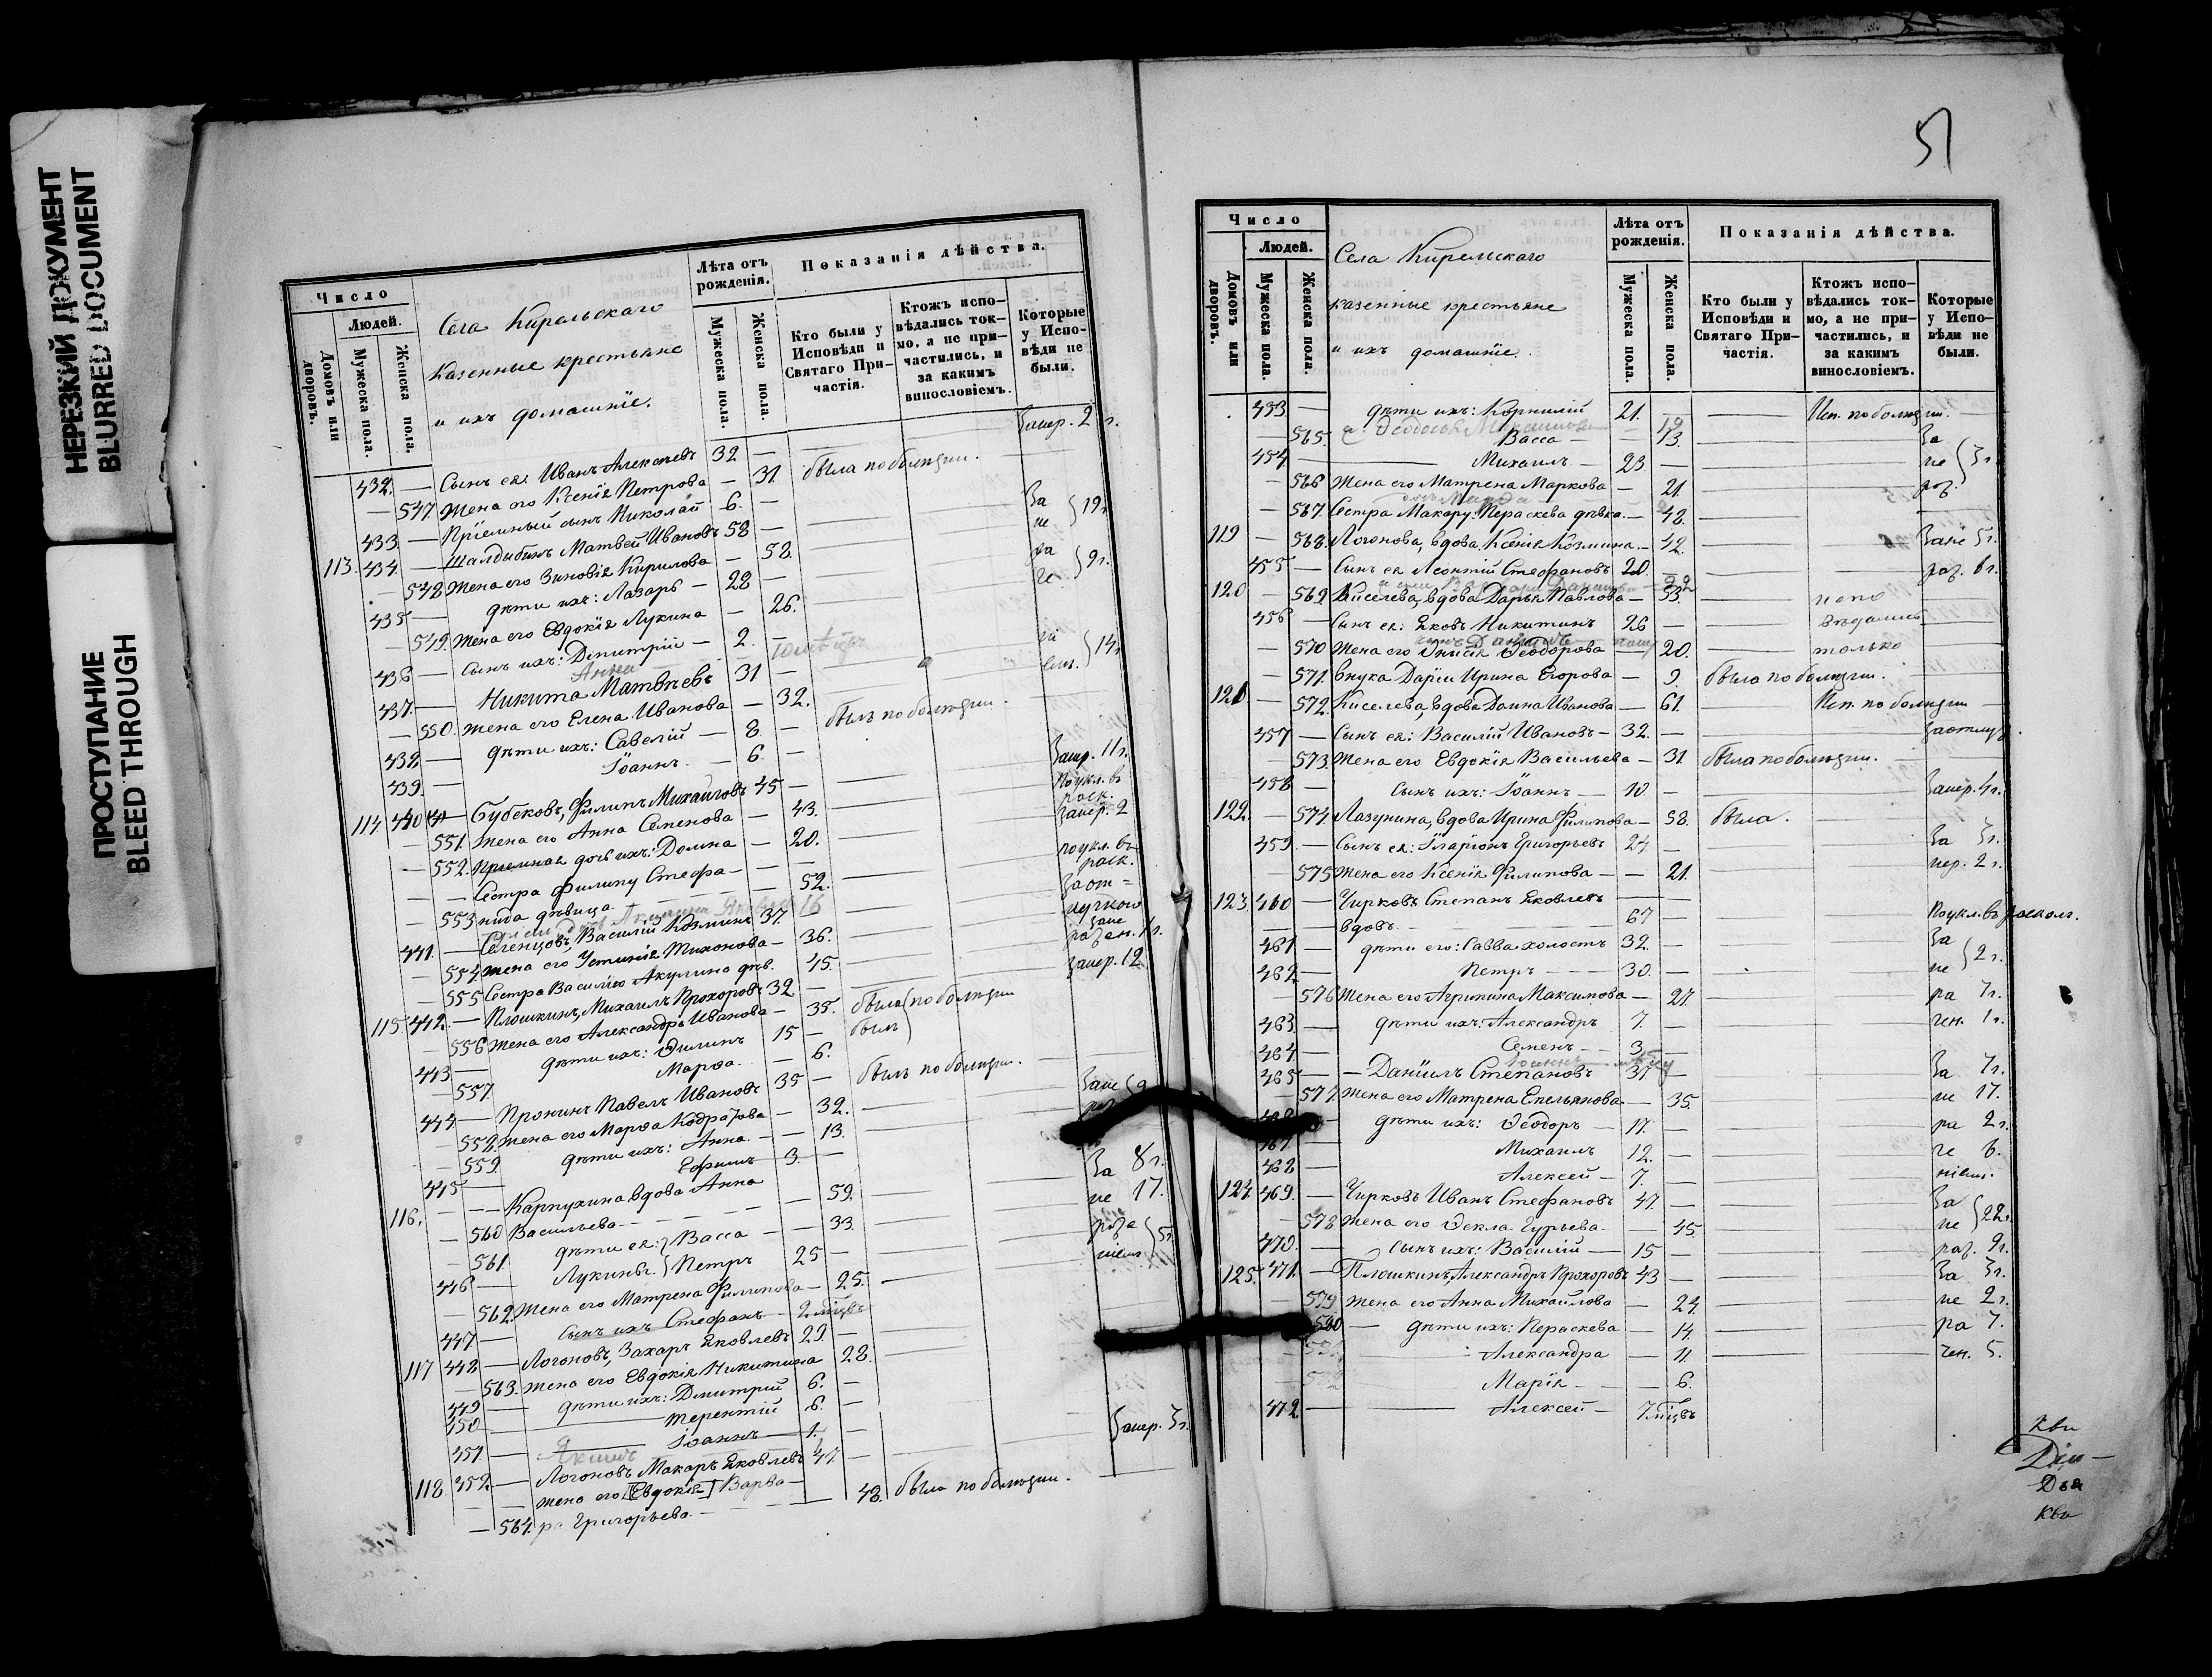 НЕРЕЗКИЙ ДОКУМЕНТ
BLURRED DOCUMENT
ПРОСТУПАНИЕ
BLEED THROUGH
Число
Людей.
Домовъ или дворовъ.
Мужеска пола.
Женска пола.
Села Кирельскаго
казенные крестьяне
и ихъ домашніе.
Лѣта отъ рожденія.
Мужеска пола.
Женска пола.
Показанія дѣйства.
Кто были у Исповѣди и Святаго Причастія.
Ктожъ исповѣдались токмо, а не причастились, и за какимъ винословіемъ.
Которые у Исповѣди не были.
432. — Сынъ ея: Иванъ Алексѣевъ 32 — Запер. 2 г.
— 547. Жена его Ксенія Петрова — 31 была по болѣзни.
433. — Пріемный сынъ Николай 6. —
113. 434 — Шалдыбинъ Матвей Ивановъ 58 — За не } 19 г
— 548 Жена его Зиновія Кирилова — 58.
435 — дѣти ихъ: Лазарь — 28 — ра че } 9 г.
— 549. Жена его Евдокія Лукина — 26.
436 — Сынъ ихъ: Димитрій — 2. —
Анна
437. — Никита Матвѣевъ 31 — } 14
— 550. Жена его Елена Иванова — 32.
438. — дѣти ихъ: Савелій — 8. — былъ по болѣзни.
439. — Іоаннъ. — 6. —
114 440 — Бубековъ, Филипъ Михайловъ 45 — Запер. 11 г.
— 551. Жена его Анна Семенова — 43. Поукл. въ раск.
— 552. Приемная дочь ихъ: Домна — 20. Запер. 2
— — Сестра Филипу Стефа-
— 553 нида дѣвица — 52. поукл. въ раск.
441. — Селенцовъ, Василій Козминъ 37. За отлучкою
— 554 Жена его Устинія Тихонова — 36.
— 555 Сестра Василію Акулина дѣв. 45. Запер. 12
115. 442. — Плошкинъ, Михаилъ Прохоровъ 32 —
— 556 Жена его Александра Иванова — 35. была } по болѣзни
443 — дѣти ихъ: Филипъ 15 — былъ
557. Марѳа. — 6.
444 — Пронинъ Павелъ Ивановъ 35 — былъ по болѣзни.
558. Жена его Марѳа Кодратова — 32.
559. дѣти ихъ: Анна — — 13.
445 — Ефимъ 3. —
116. — — Карпухина вдова Анна За 8 г.
— 560 Васильева — — — 59. не 17.
— 561 дѣти ея: } Васса — — 33
446 — Лукины. } Петръ 25 — } 5
— 562. Жена его Матрена Филипова — 25.
447 — Сынъ ихъ Стефанъ — 2 мѣсцъ
117 448 — Логоновъ, Захаръ Яковлевъ 29. —
— 563. Жена его Евдокія Никитина 28.
449 — дѣти ихъ: Дмитрій 6. —
450 — Терентій 6. —
451. — Іоаннъ — 1. —
118. 452 — Логоновъ Макаръ Яковлевъ 47 — Запер. 3 г.
— — Жена его [Евдокія] Варва-
— 564. ра Григорьева. — — 48. была по болѣзни.
51
Число
Людей.
Домовъ или дворовъ.
Мужеска пола.
Женска пола.
Села Кирельскаго
казенные крестьяне
и ихъ домашніе.
Лѣта отъ рожденія.
Мужеска пола.
Женска пола.
Показанія дѣйства.
Кто были у Исповѣди и Святаго Причастія.
Ктожъ исповѣдались токмо, а не причастились, и за какимъ винословіемъ.
Которые у Исповѣди не были.
453 — дѣти ихъ: Корнилій 21. — Исп. по болѣзни.
— 565. Васса — — 13. За
454 — Михаилъ — 23. — не } 3 г.
— 566 Жена его Матрена Маркова — 21. раз.
— 567 Сестра Макару: Пераскева дѣвка. — 48.
119 — 568. Логонова, вдова, Ксенія Козмина. — 42. Зане 5 г.
455 — Сынъ ея Леонтій Стефановъ 20. — раз. 6 г.
120 — 569. Киселева, вдова Дарья Павлова — 53. испо
456 — Сынъ ея: Яковъ Никитинъ 26 — вѣдались
— 570 Жена его Ѳеодорова — 20. — только
— 571. Внука Даріи Ирина Егорова — 9. была по болѣзни.
121. — 572. Киселева, вдова Домна Иванова — 61. Исп. по болѣзни
457 — Сынъ ея: Василій Ивановъ — 32. — Заотлуч.
— 573. Жена его Евдокія Васильева — 31 была по болѣзни.
458 — Сынъ ихъ: Іоаннъ — 10 — Запер. 4 г.
122. — 574. Лазунина, вдова Ирина Филипова — 58. была.
459. — Сынъ ея: Иларіонъ Григорьевъ 24 — За 3 г.
575 Жена его Ксенія Филипова — — 21. пер. 2 г.
123. 460 — Чирковъ Степанъ Яковлевъ
— — вдовъ. — — — 67 — Поукл. въ расколъ.
461 — дѣти его: Савва холостъ 32. — За
462 — Петръ — — — 30. — не } 2 г.
— 576 Жена его Агрипина Максимова — 27 ра 7 г.
463. — дѣти ихъ: Александръ 7. — чен. 1 г.
464. — Семенъ — 3. —
465 — Даніилъ Степановъ 37. — За 7 г.
— 577. Жена его Матрена Емельянова — 35. не 17.
466 — дѣти ихъ: Ѳеодоръ — 17. — ра 2 г.
467. — Михаилъ 12. — че 6.
468 — Алексей — 7. — ніем.
124. 469. — Чирковъ Иванъ Стефановъ 47. — За
— 578 Жена его Ѳекла Гурьева — — 45. не } 22 г.
470. — Сынъ ихъ: Василій — 15 — раз. 9 г.
125. 471. — Плошкинъ, Александръ Прохоровъ 43 — За 3 г.
579 Жена его Анна Михайлова — 24. не 2 г.
580 — дѣти ихъ: Пераскева — 14. ра 7.
581 Александра — 11. чен. 5.
582 Марія — — — 6.
472 — Алексей — 7 мѣсцъ